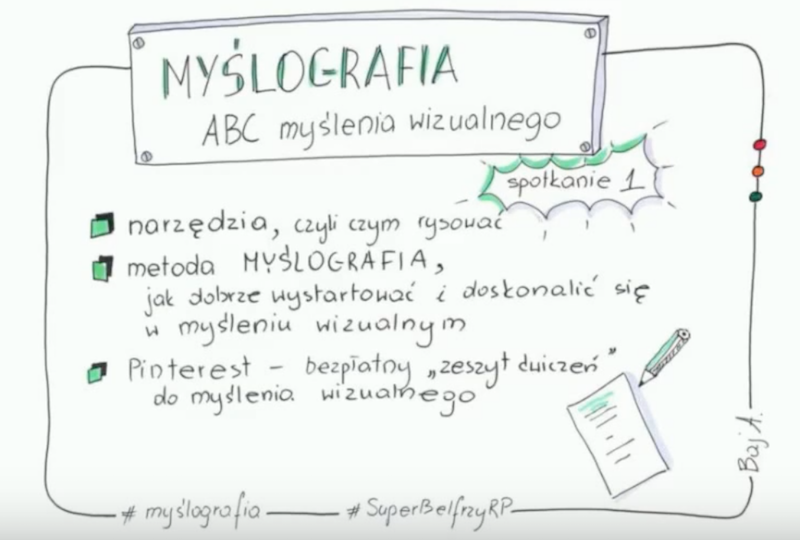 MYŚLOGRAFIA
ABC myślenia wizualnego
spotkanie 1
narzędzia, czyli czym rysować
metoda MYŚLOGRAFIA,
jak dobrze wystartować i doskonalić się
w myśleniu wizualnym
Pinterest – bezpłatny „zeszyt ćwiczeń”
do myślenia wizualnego
Baj A.
# myślografia # SuperBelfrzyRP